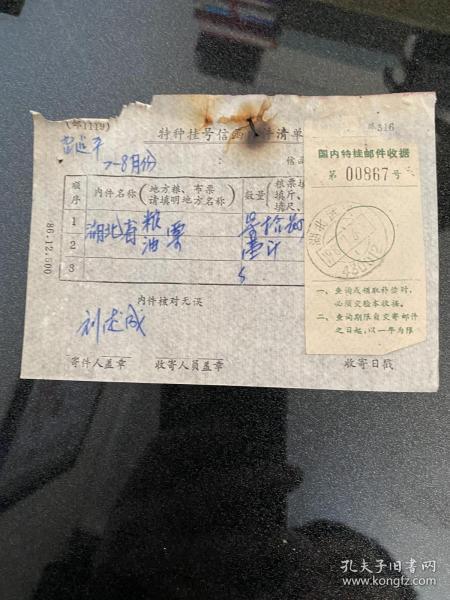 (邮1119)
特种挂号信函 件清单
7-8月份
信函
邮316
国内特挂邮件收据
第 00867 号
顺序 内件名称 (地方粮、布票请填明地方名称) 数量 (粮票填斤、填尺、
1 湖北省粮票
2 油票 壹斤
3
86.12.500
内件核对无误
刘成
寄件人盖章 收寄人员盖章 收寄日戳
一、查询或领取补偿时,
必须交验本收据。
二、查询期限自交寄邮件
之日起,以一年为限
孔夫子旧书网
www.kongfz.com